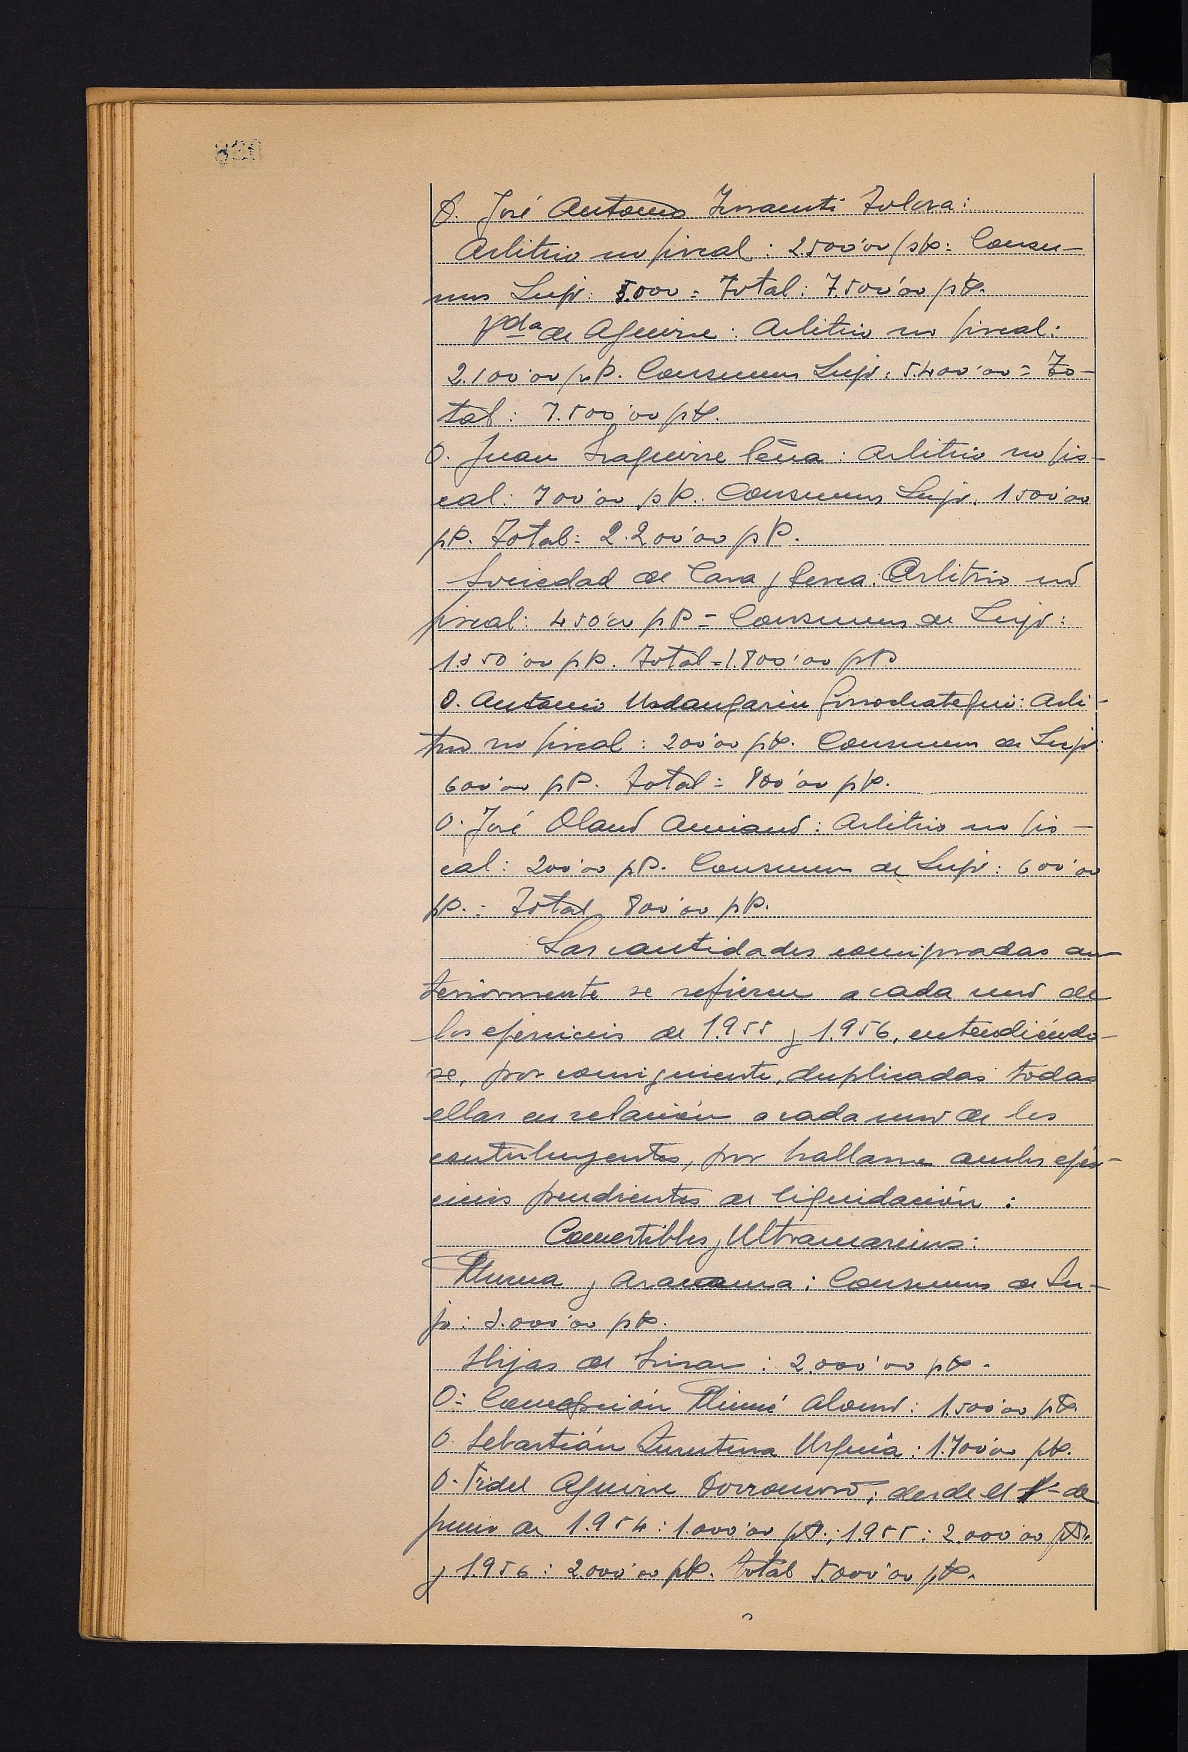 D. José Antonio
Arbitrio no fiscal: 2.500'00 pts: Consu-
mos Lujo: 5.000 = Total: 7.500'00 pts.
Vda de Aguirre: Arbitrio no fiscal:
2.100'00 pts. Consumos Lujo: 5.400'00 = To-
tal: 7.500'00 pts.
D. Juan Izaguirre Peña: Arbitrio no fis-
cal: 700'00 pts. Consumos Lujo. 1500'00
pts. Total: 2.200'00 pts.
Sociedad de Caza y Pesca: Arbitrio no
fiscal: 450'00 pts = Consumos de Lujo:
1350'00 pts. Total = 1.800'00 pts
D. Antonio Urdangarin Gorrochategui: Arbi-
trio no fiscal: 200'00 pts. Consumos de Lujo:
600'00 pts. Total = 800'00 pts.
D. José Olano: Arbitrio no fis-
cal: 200'00 pts. Consumos de Lujo: 600'00
pts. = Total 800'00 pts.
Las cantidades consignadas an
teriormente se refieren a cada uno de
los ejercicios de 1.955 y 1.956, entendiéndo-
se, por consiguiente, duplicadas todas
ellas en relación a cada uno de los
contribuyentes, por hallarse ambos ejer-
cicios pendientes de liquidación:
Comestibles y Ultramarinos:
y Aramburu: Consumos de Lu-
jo: 3.000'00 pts.
Hijas de: 2.000'00 pts.
Dª Concepción: 1.500'00 pts.
D. Sebastián Urquía: 1.700'00 pts.
D. Fidel Aguirre: desde el 1º de
junio de 1.954: 1.000'00 pts.; 1.955: 2.000'00 pts.
y 1.956: 2.000'00 pts. Total 5.000'00 pts.